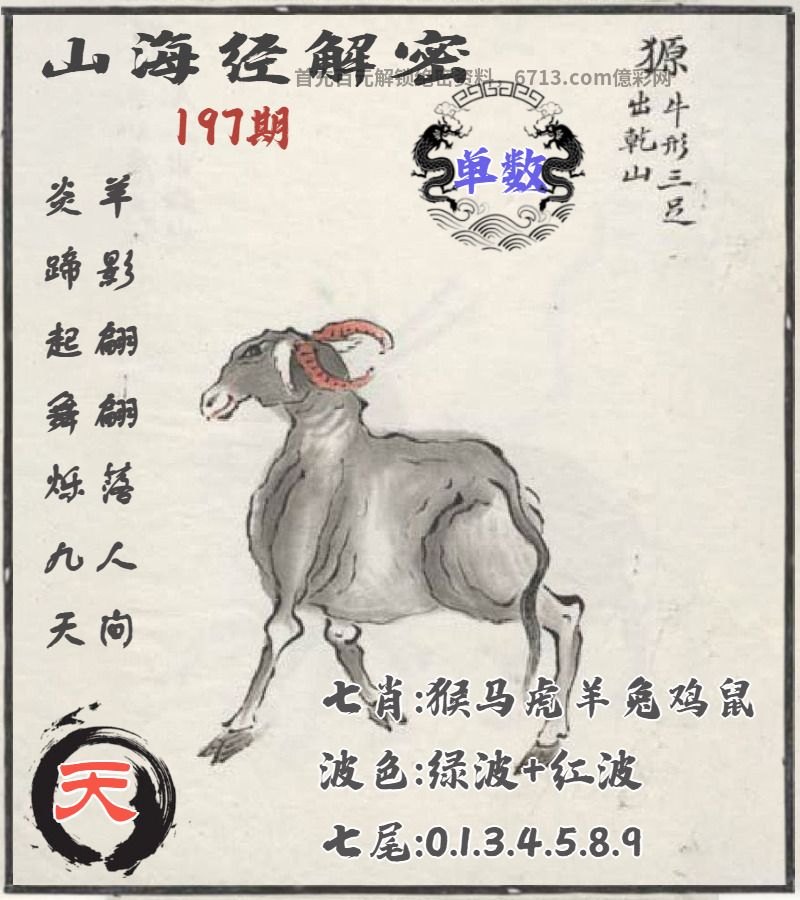 山海经解密
首先百元解锁给出资料，6713.com億彩网
197期
单数
獂
牛形三足
出乾山
羊影翩翩落人间
炎蹄起舞烁九天
七肖:猴马虎羊兔鸡鼠
波色:绿波+红波
天
七尾:0.1.3.4.5.8.9